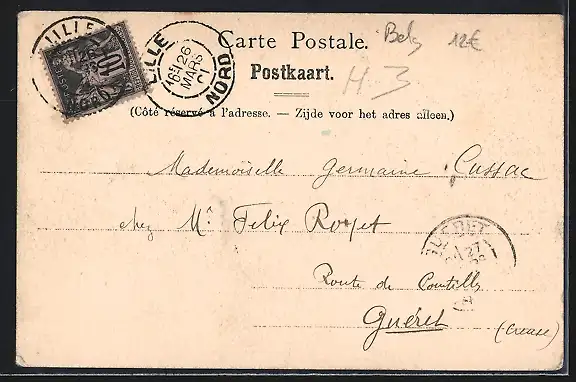 LILLE
10
LILLE
26
MARS
01
NORD
Carte Postale.
Belg 12€
Postkaart.
H-3
(Côté réservé à l'adresse. — Zijde voor het adres alleen.)
Mademoiselle Germaine Cussac
chez Mr. Felix Roget
GUERET
27
Route de
Guéret (Creuse)